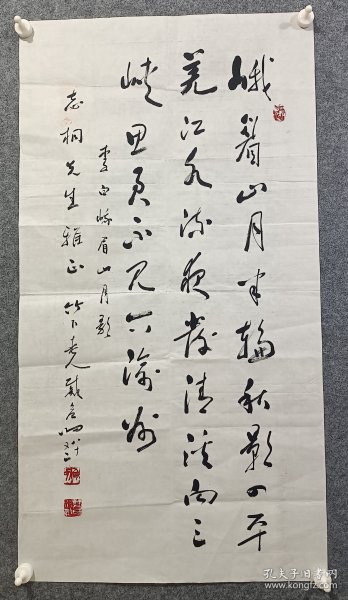 峨眉山月半輪秋影入平
羌江水流夜發清溪向三
峽思君不見下渝州
李白峨眉山月歌
志桐先生雅正
孔夫子旧书网